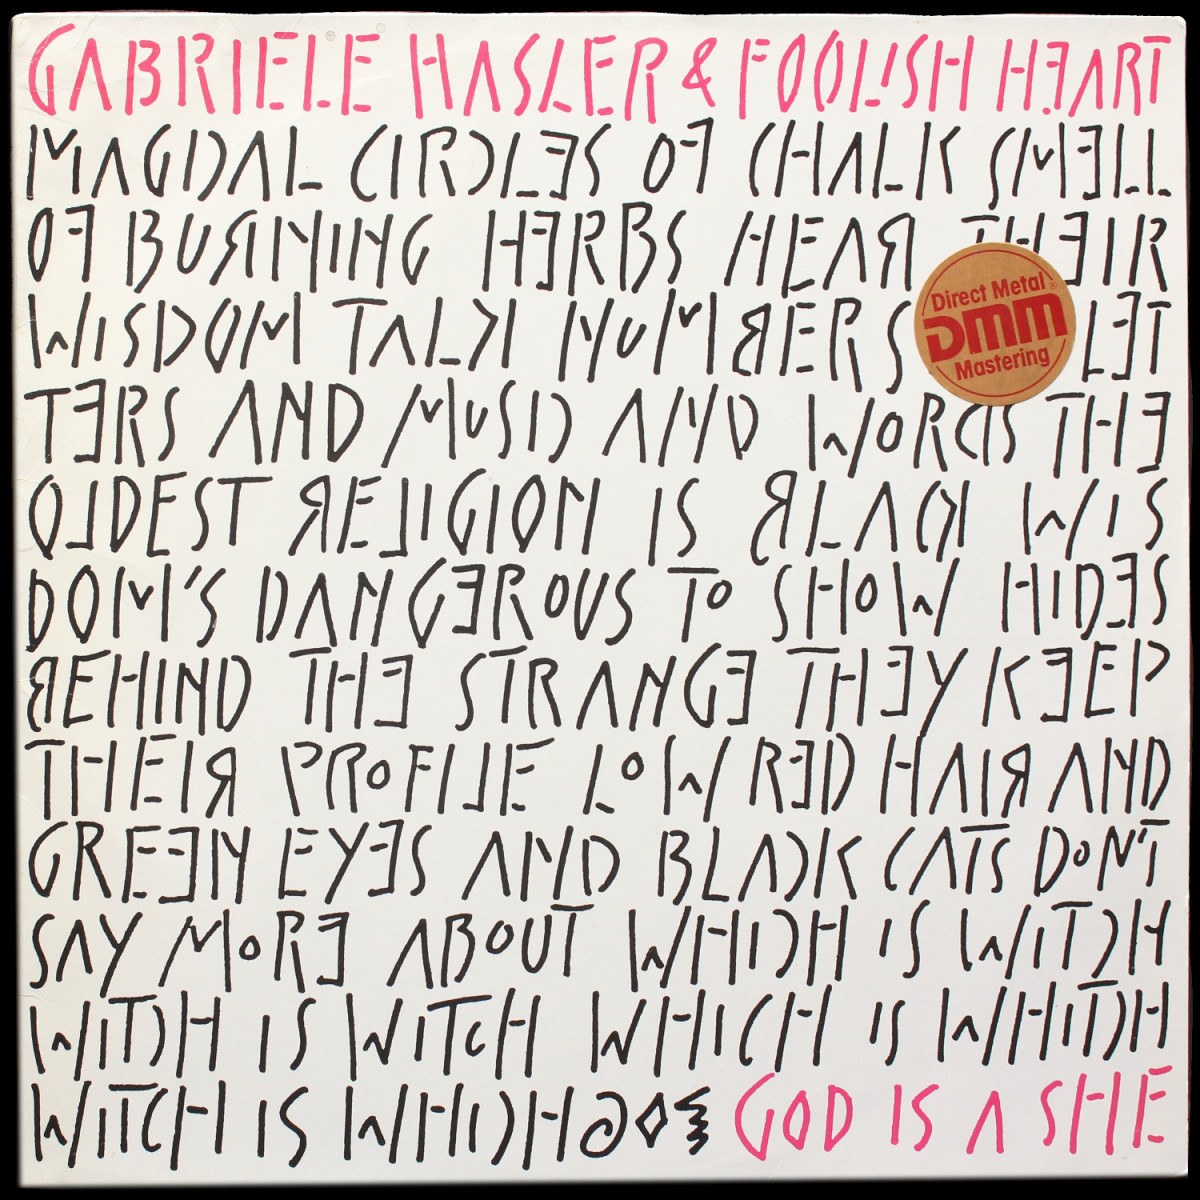 GABRIELE HASLER & FOOLISH HEART
MAGDAL CIRCLES OF CHALK SMELL
OF BURNING HERBS HEAR THEIR
WISDOM TALK NUMBERS LET
TERS AND MUSIC AND WORDS THE
OLDEST RELIGION IS BLACK WIS
DOM'S DANGEROUS TO SHOW HIDES
BEHIND THE STRANGE THEY KEEP
THEIR PROFILE LOW RED HAIR AND
GREEN EYES AND BLACK CATS DON'T
SAY MORE ABOUT WHICH IS WITCH
WITCH IS WITCH WHICH IS WHITCH
WITCH IS WHICH GOD IS A SHE
Direct Metal®
DMM
Mastering